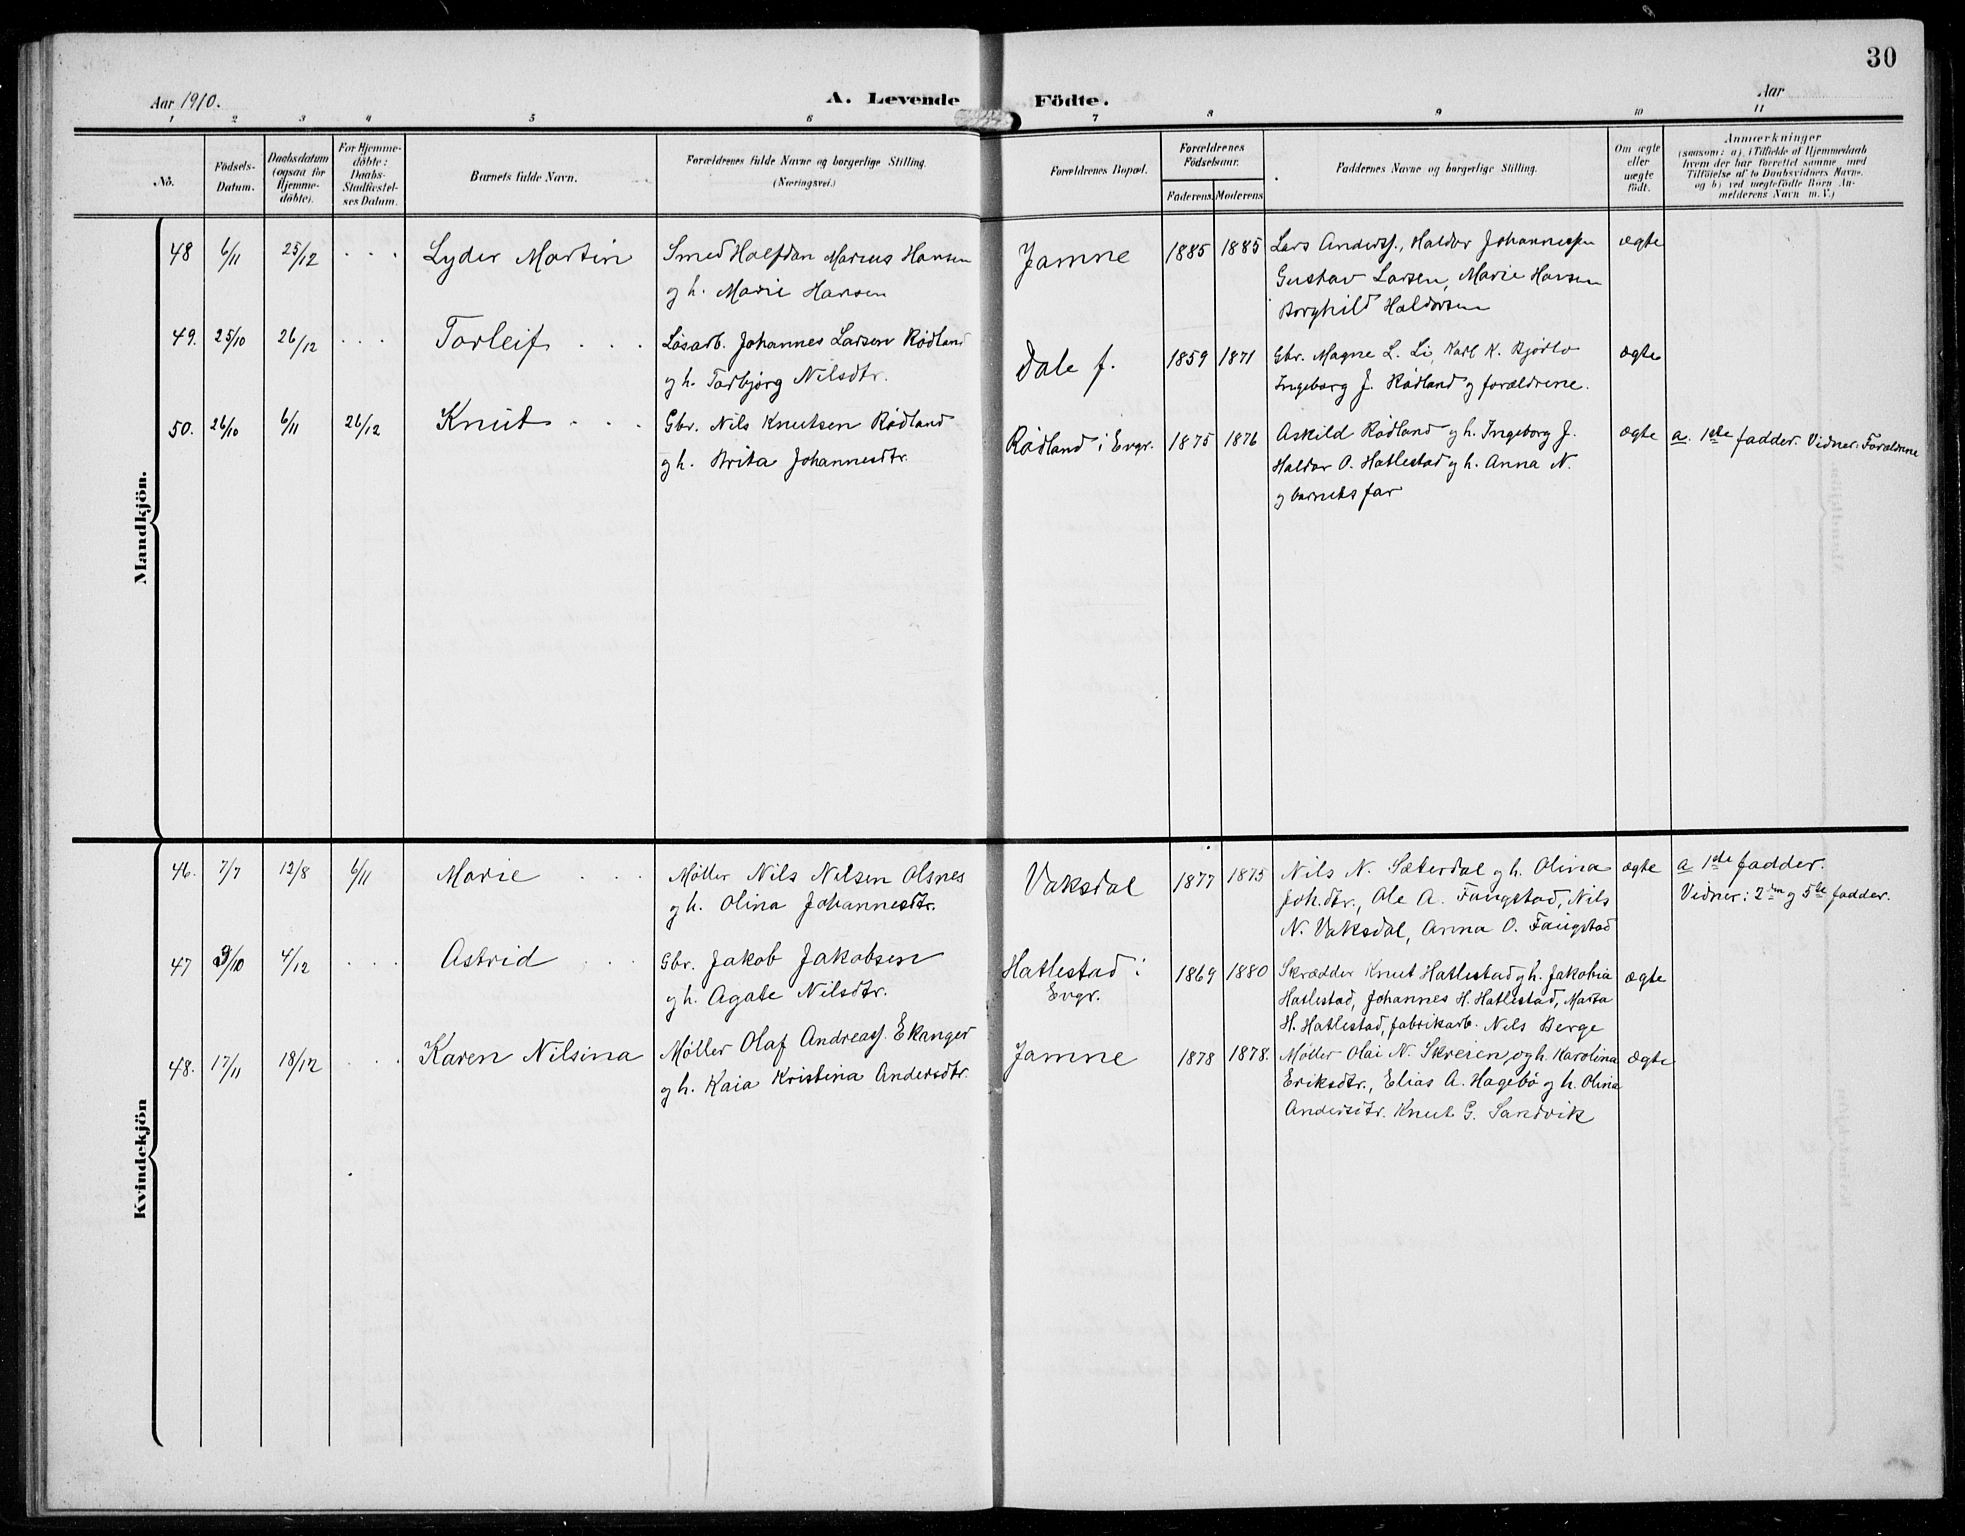 30
Aar 1910.
A. Levende Födte.
Aar
1 2 3 4 5 6 7 8 9 10 11
No.
Födsels-
Datum.
Daabsdatum
(ogsaa for
Hjemme-
döbte).
For Hjemme-
döbte:
Daabs-
Stadfæstel-
ses Datum.
Barnets fulde Navn.
Forældrenes fulde Navne og borgerlige Stilling.
(Næringsvei.)
Forældrenes Bopæl.
Forældrenes
Födselsaar.
Faderens Moderens
Faddernes Navne og borgerlige Stilling.
Om ægte
eller
uægte
födt.
Anmærkninger
(saasom: a) i Tilfælde af Hjemmedaab
hvem der har forrettet samme, med
Tilföielse af to Daabsvidners Navne.
og b) ved uægtefödte Börn An-
melderens Navn m. V.)
Mandkjön.
48 6/11 25/12 . . . Lyder Martin
Smed Halfdan Marius Hansen
og h. Marie Hansen
Jamne 1885 1885
Lars Anderss., Haldor Johannessen
Gustav Larsen, Marie Hansen
Borghild Haldorsen
ægte
49. 25/10 26/12 . . . Torleif . . .
Løsarb. Johannes Larsen Rødland
og h. Torbjørg Nilsdtr.
Dale f. 1859 1871
Gbr. Magne L. Li, Karl K. Bjørlo
Ingeborg J. Rødland og forældrene.
ægte
50. 26/10 6/11 26/12 Knut . . .
Gbr. Nils Knutsen Rødland
og h. Brita Johannesdtr.
Rødland i Evgr. 1875 1876
Askild Rødland og h. Ingeborg J.
Haldor O. Hatlestad og h. Anna N.
og barnets far
ægte
a. 1ste fadder. Vidner: Forældrene
Kvindekjön
46. 7/7 12/8 6/11 Marie . . .
Møller Nils Nilsen Olsnes
og h. Olina Johannesdtr.
Vaksdal 1877 1875
Nils N. Sæterdal og h. Olina
Joh.dtr., Ole A. Faugstad, Nils
N. Vaksdal, Anna O. Faugstad
ægte
a 1ste fadder.
Vidner: 2den og 5te fadder.
47 3/10 4/12 . . . Astrid . . .
Gbr. Jakob Jakobsen
og h. Agate Nilsdtr.
Hatlestad i
Evgr.
1869 1880
Skrædder Knut Hatlestad og h. Jakobia
Hatlestad, Johannes H. Hatlestad, Marta
H. Hatlestad, fabrikarb. Nils Berge
ægte
48. 17/11 18/12 . . . Karen Nilsina
Møller Olaf Andreass. Ekanger
og h. Kaia Kristina Andersdtr.
Jamne 1878 1878.
Møller Olai N. Skreien, og h. Karolina
Eriksdtr., Elias A. Hagebö og h. Olina
Andersdtr. Knut G. Sandvik
ægte